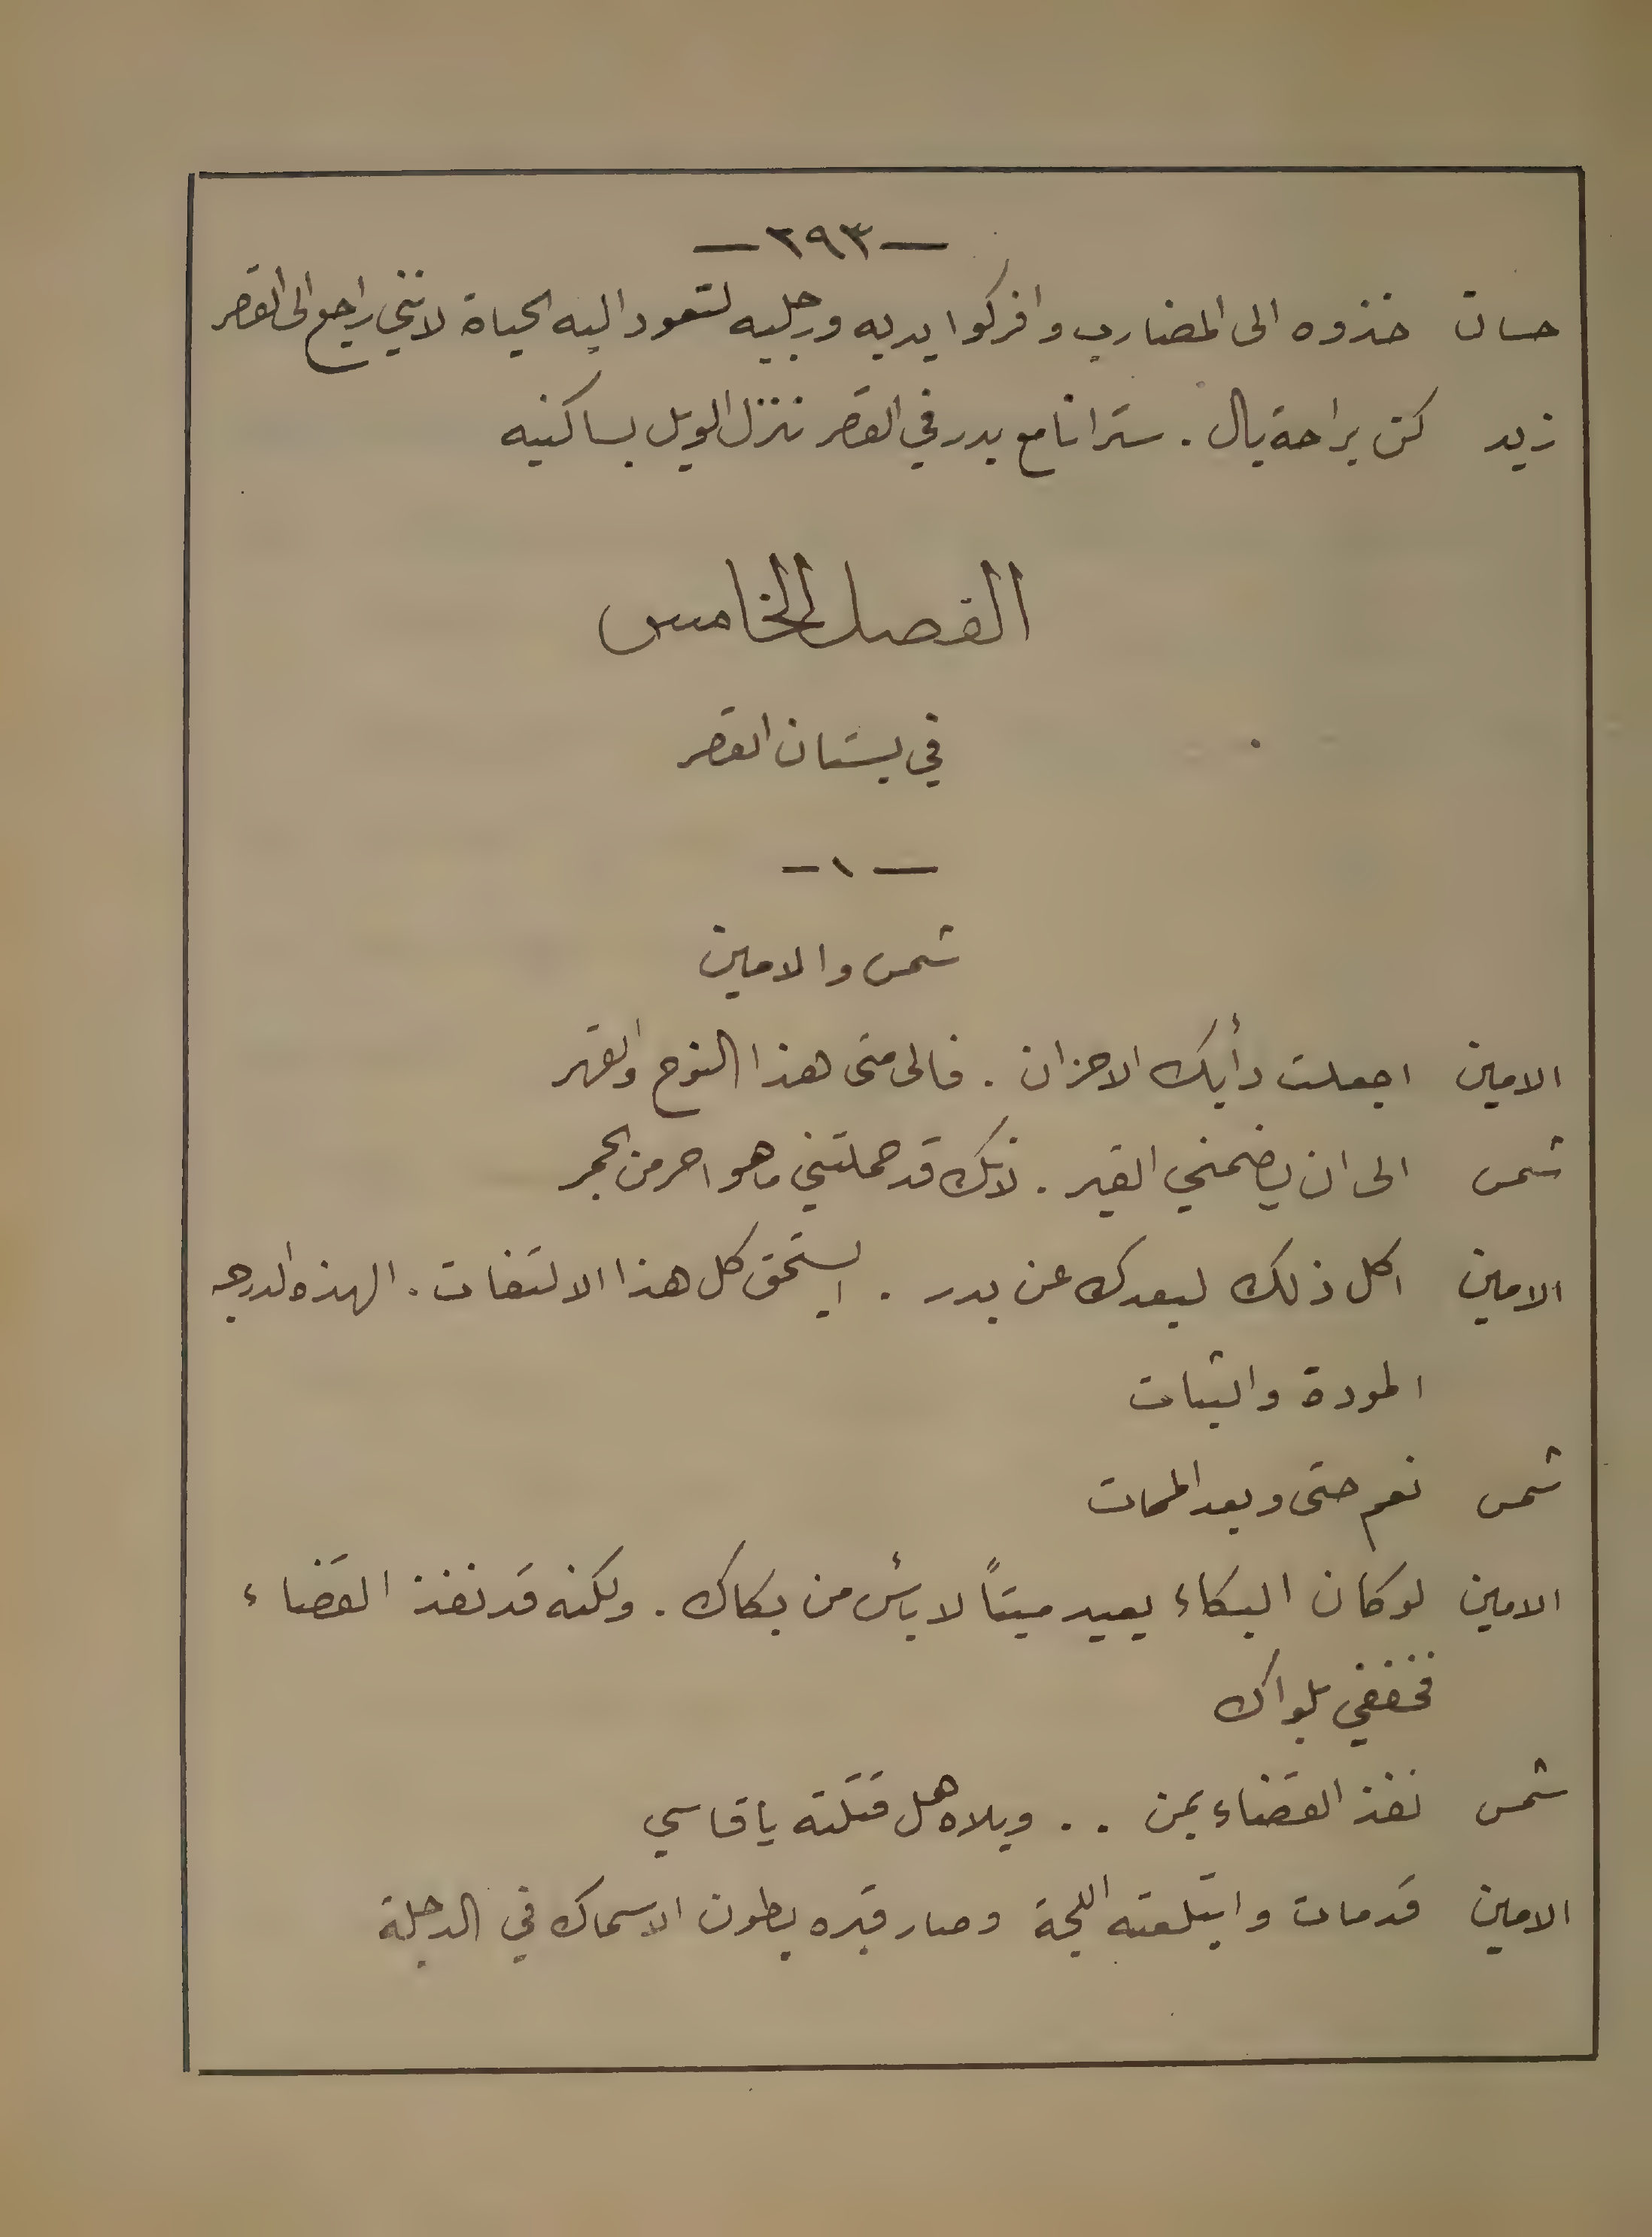 —٢٩٣—
حسان خذوه الى المضارب وافركوا يديه ورجليه لتعود اليه الحياة لانني راجع الى القصر
زيد كن براحة بال . سترانا مع بدر في القصر ننزل الويل بساكنيه
الفصل الخامس
في بستان القصر
— ١ —
شمس والامين
الامين اجعلت دأبك الاحزان . فالى متى هذا النوح والقهر
شمس الى ان يضمني القبر . لانك قد حملتني ما هو احر من الجمر
الامين اكل ذلك لبعدك عن بدر . ايستحق كل هذا الالتفات . الهذه الدرجه
المودة والثبات
شمس نعم حتى وبعد الممات
الامين لو كان البكاء يعيد ميتاً لا بأس من بكاك . ولكنه قد نفذ القضاء
فخففي بلواك
شمس نفذ القضاء بمن . . ويلاه هل قتلته يا قاسي
الامين قد مات وابتلعته اللجة وصار قبره بطون الاسماك في الدجلة